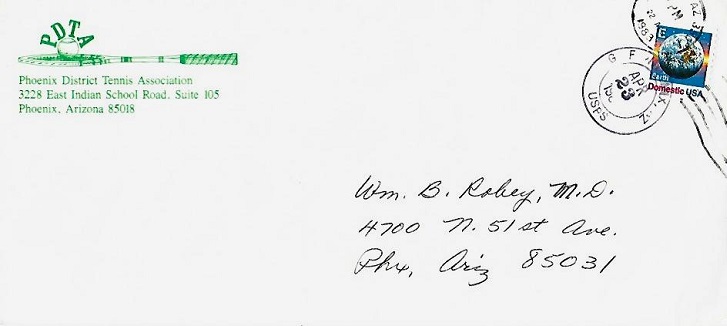 PDTA
Phoenix District Tennis Association
3228 East Indian School Road. Suite 105
Phoenix, Arizona 85018
AZ
PM
22
1989
E
Earth
Domestic USA
G F
APR
23
AZ
USPS
Wm. B. Robey, M.D.
4700 N. 51st Ave.
Phx, Ariz 85031